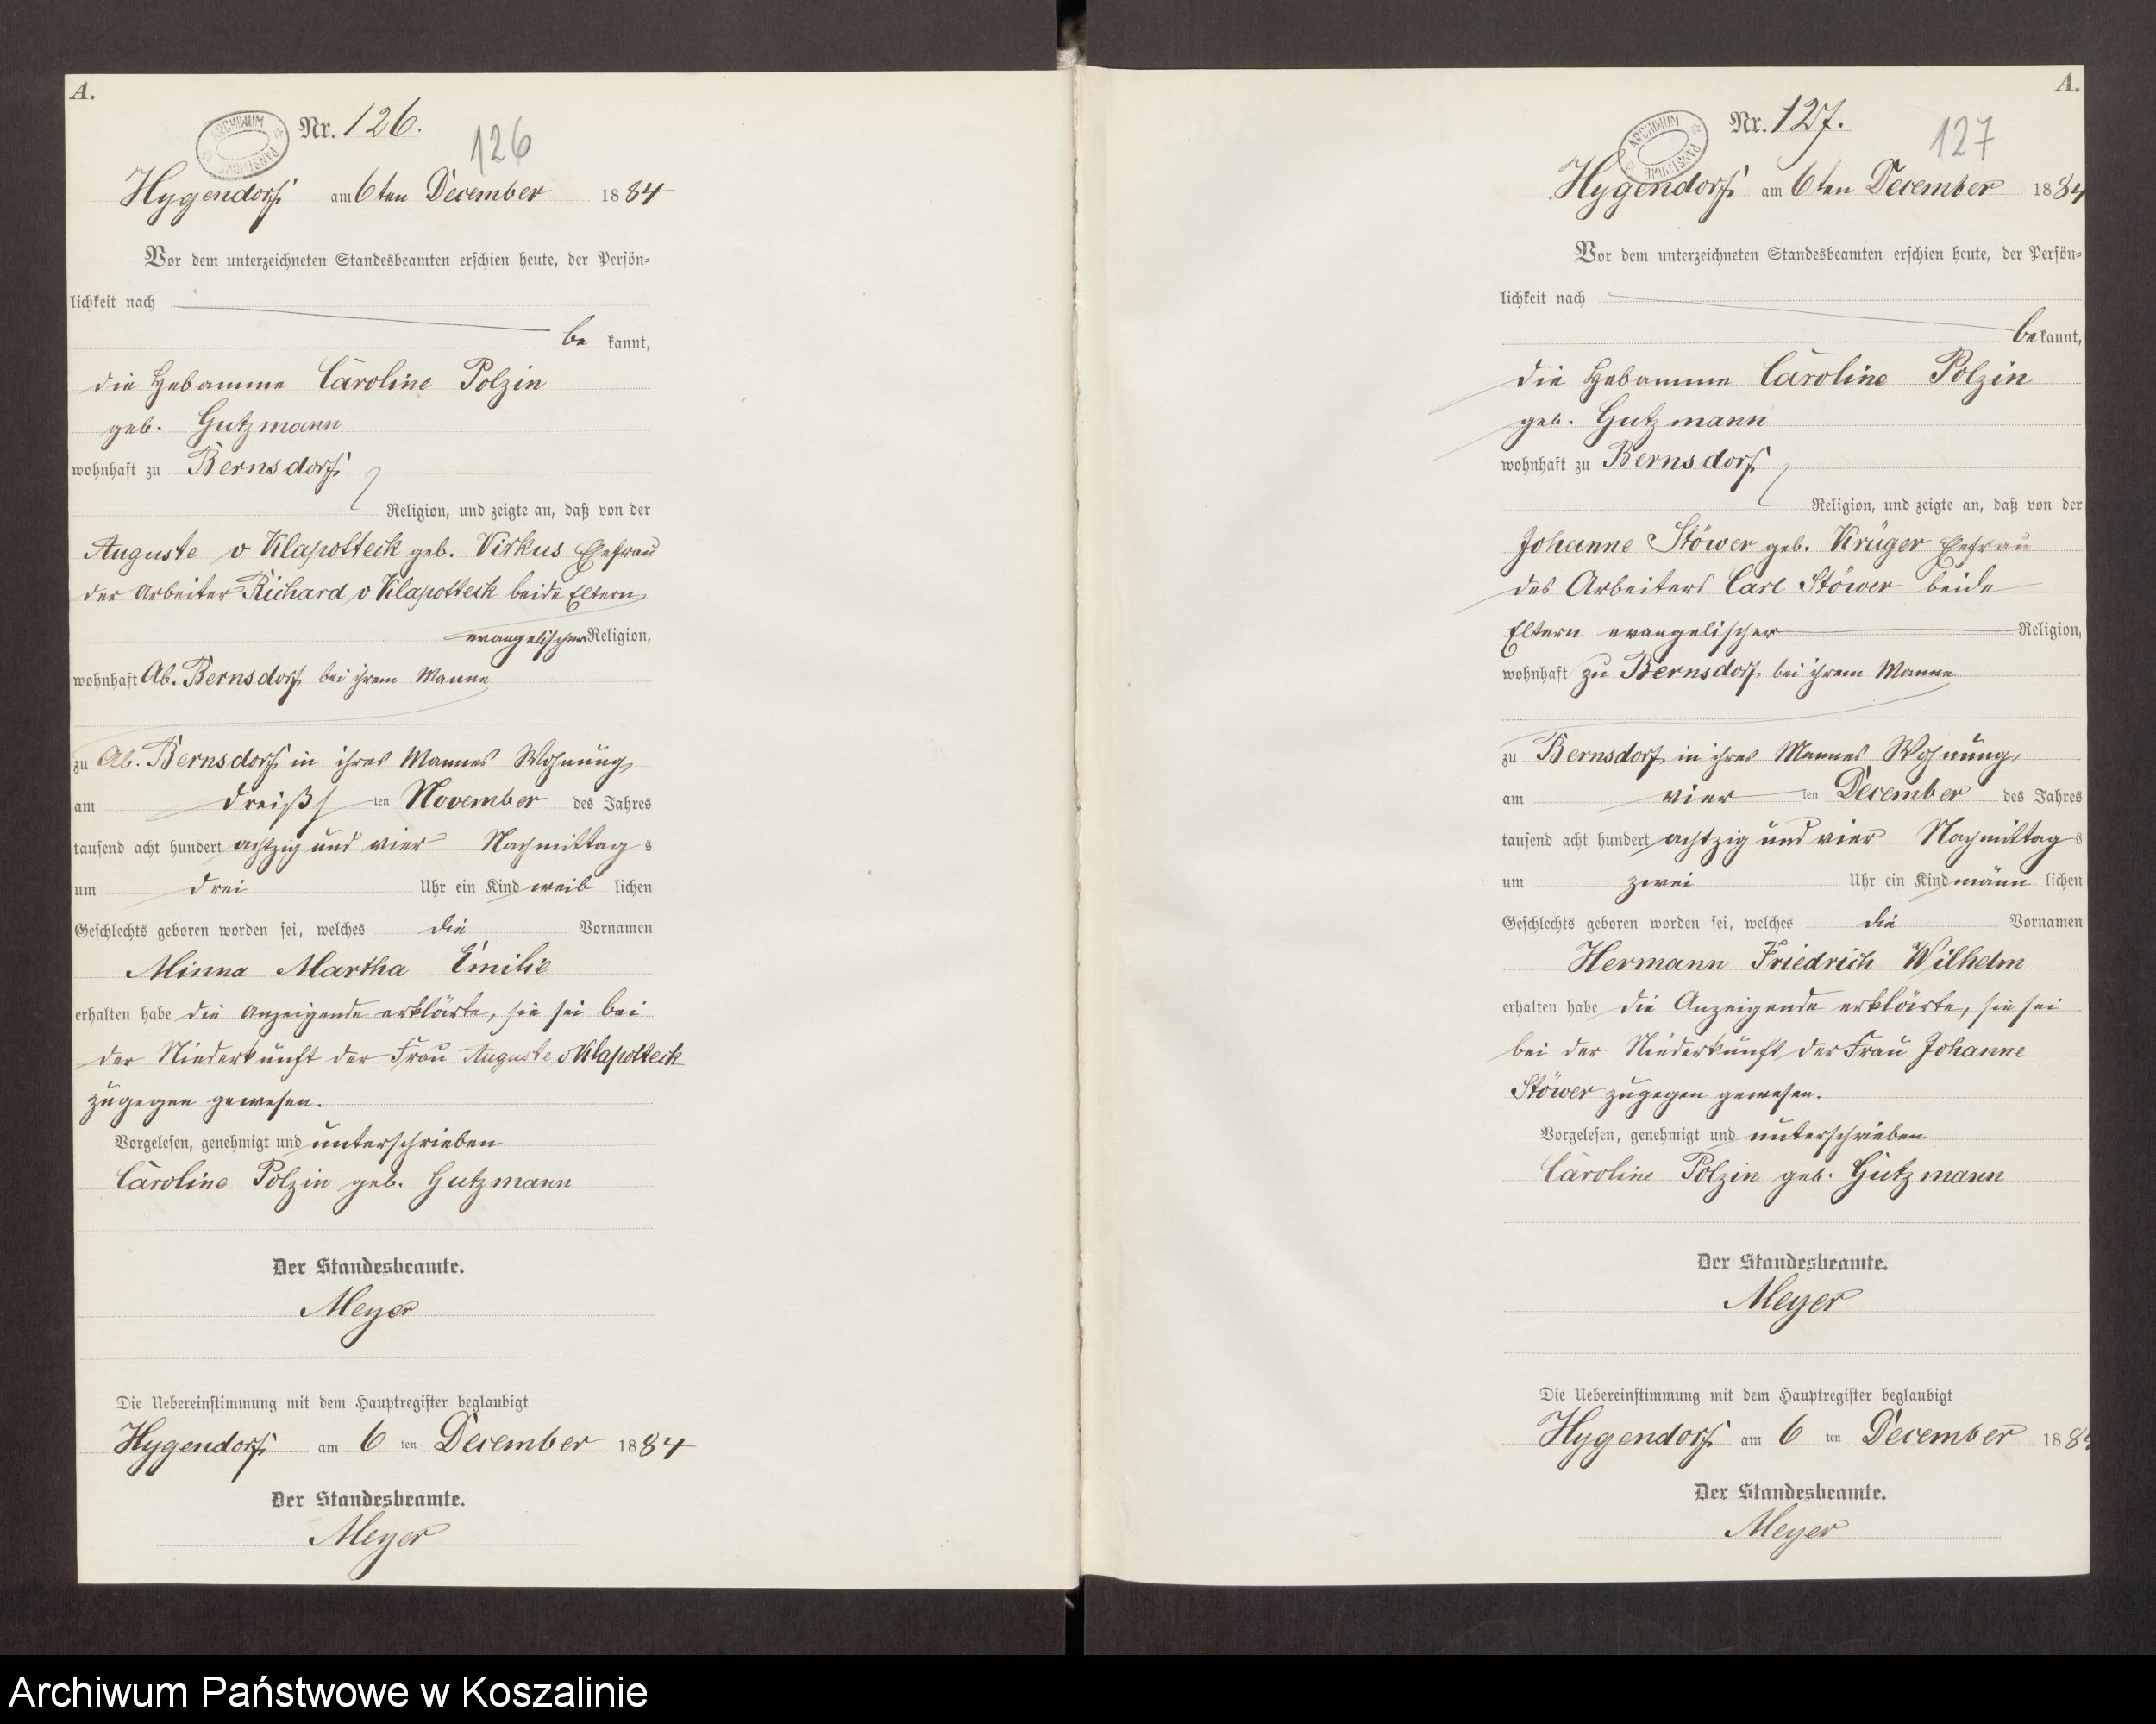 A.
ARCHIWUM PAŃSTWOWE
Nr. 126.
126
Hygendorf am 6ten December 1884
Vor dem unterzeichneten Standesbeamten erschien heute, der Persön-
lichkeit nach
be kannt,
die Hebamme Caroline Polzin
geb. Gutzmann
wohnhaft zu Bernsdorf
Religion, und zeigte an, daß von der
Auguste v Klapotteck geb. Virkus Ehefrau
der Arbeiter Richard v Klapotteck beide Eltern
evangelischer Religion,
wohnhaft Ab. Bernsdorf bei ihrem Manne
zu Ab. Bernsdorf in ihres Mannes Wohnung
am dreißigs ten November des Jahres
tausend acht hundert achtzig und vier Nachmittag s
um drei Uhr ein Kind weib lichen
Geschlechts geboren worden sei, welches die Vornamen
Minna Martha Emilie
erhalten habe die Anzeigende erklärte, sie sei bei
der Niederkunft der Frau Auguste v Klapotteck
zugegen gewesen.
Vorgelesen, genehmigt und unterschrieben
Caroline Polzin geb. Gutzmann
Der Standesbeamte.
Meyer
Die Uebereinstimmung mit dem Hauptregister beglaubigt
Hygendorf am 6 ten December 1884
Der Standesbeamte.
Meyer
A.
ARCHIWUM PAŃSTWOWE
Nr. 127.
127
Hygendorf am 6ten December 1884
Vor dem unterzeichneten Standesbeamten erschien heute, der Persön-
lichkeit nach
be kannt,
die Hebamme Caroline Polzin
geb. Gutzmann
wohnhaft zu Bernsdorf
Religion, und zeigte an, daß von der
Johanne Stöwer geb. Krüger Ehefrau
des Arbeiters Carl Stöwer beide
Eltern evangelischer Religion,
wohnhaft zu Bernsdorf bei ihrem Manne
zu Bernsdorf in ihres Mannes Wohnung
am vier ten December des Jahres
tausend acht hundert achtzig und vier Nachmittag s
um zwei Uhr ein Kind männ lichen
Geschlechts geboren worden sei, welches die Vornamen
Hermann Friedrich Wilhelm
erhalten habe die Anzeigende erklärte, sie sei
bei der Niederkunft der Frau Johanne
Stöwer zugegen gewesen.
Vorgelesen, genehmigt und unterschrieben
Caroline Polzin geb. Gutzmann
Der Standesbeamte.
Meyer
Die Uebereinstimmung mit dem Hauptregister beglaubigt
Hygendorf am 6 ten December 1884
Der Standesbeamte.
Meyer
Archiwum Państwowe w Koszalinie